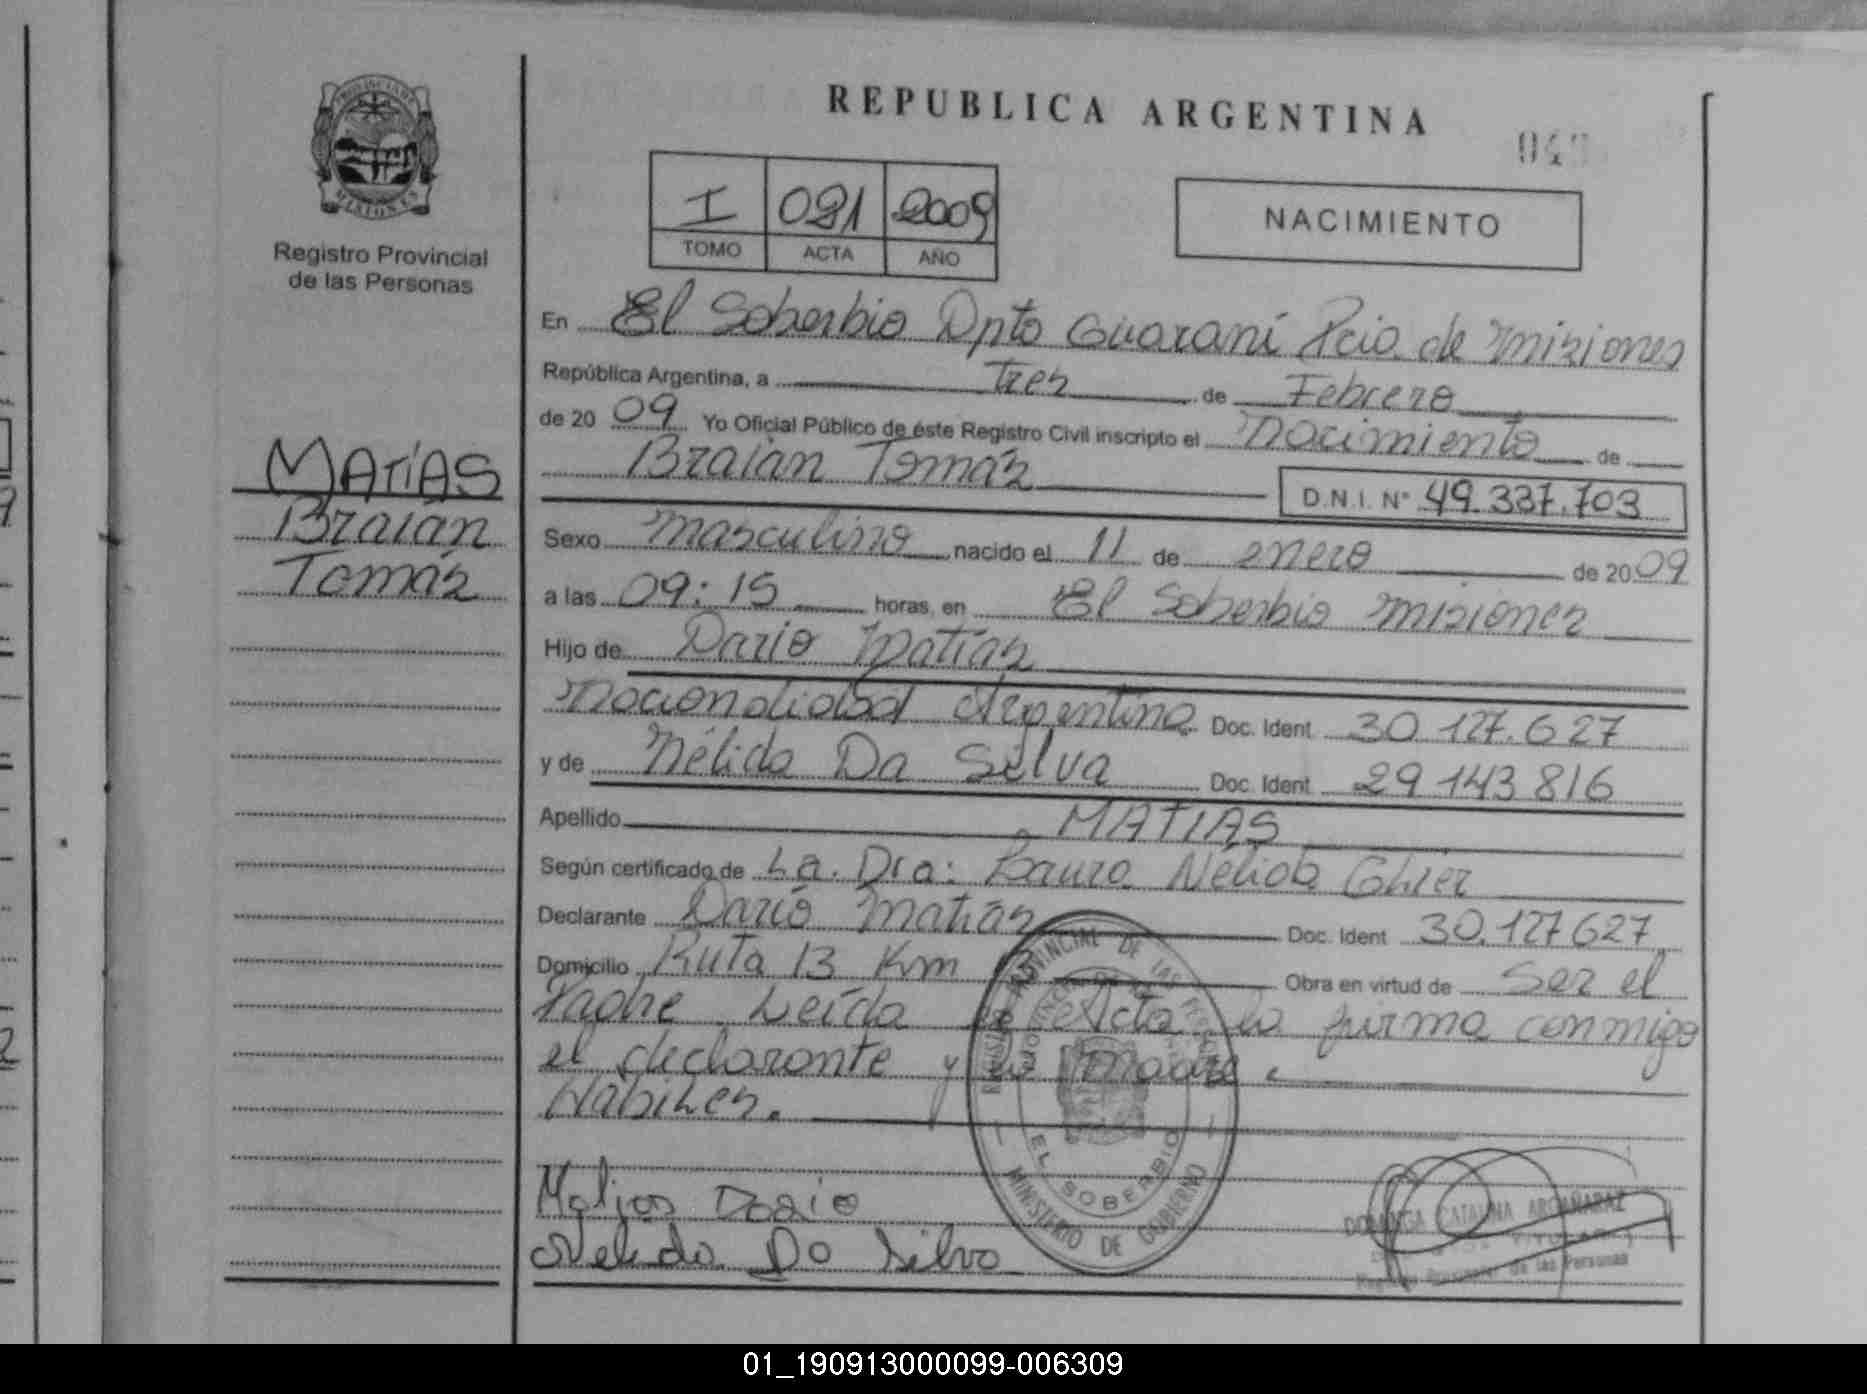 REPUBLICA ARGENTINA
PROVINCIA DE
MISIONES
Registro Provincial
de las Personas
I 091 2009
TOMO ACTA AÑO
NACIMIENTO
En El Soberbio Dpto Guaraní Pcia de Misiones
República Argentina, a Tres de Febrero
de 20 09 Yo Oficial Público de éste Registro Civil inscripto el Nacimiento de
Braian Tomás
D.N.I. N° 49.337.703
MATÍAS
Braian
Tomás
Sexo Masculino nacido el 11 de enero de 20 09
a las 09:15 horas, en El Soberbio Misiones
Hijo de Dario Matías
Nacionalidad Argentina Doc. Ident 30 127.627
y de Nélida Da Silva Doc. Ident 29 143 816
Apellido MATIAS
Según certificado de La. Dra: Laura Nelida Ghier
Declarante Darío Matías Doc. Ident 30.127 627
Domicilio Ruta 13 Km 3 Obra en virtud de Ser el
Padre Leída el Acta la firma conmigo
el declarante y la madre.
Habiles.
Matias Dario
Nelida Da Silva
PROVINCIAL DE LAS
EL SOBERBIO
MINISTERIO DE GOBIERNO
CATALINA ARGAÑARAZ
de las Personas
01_190913000099-006309